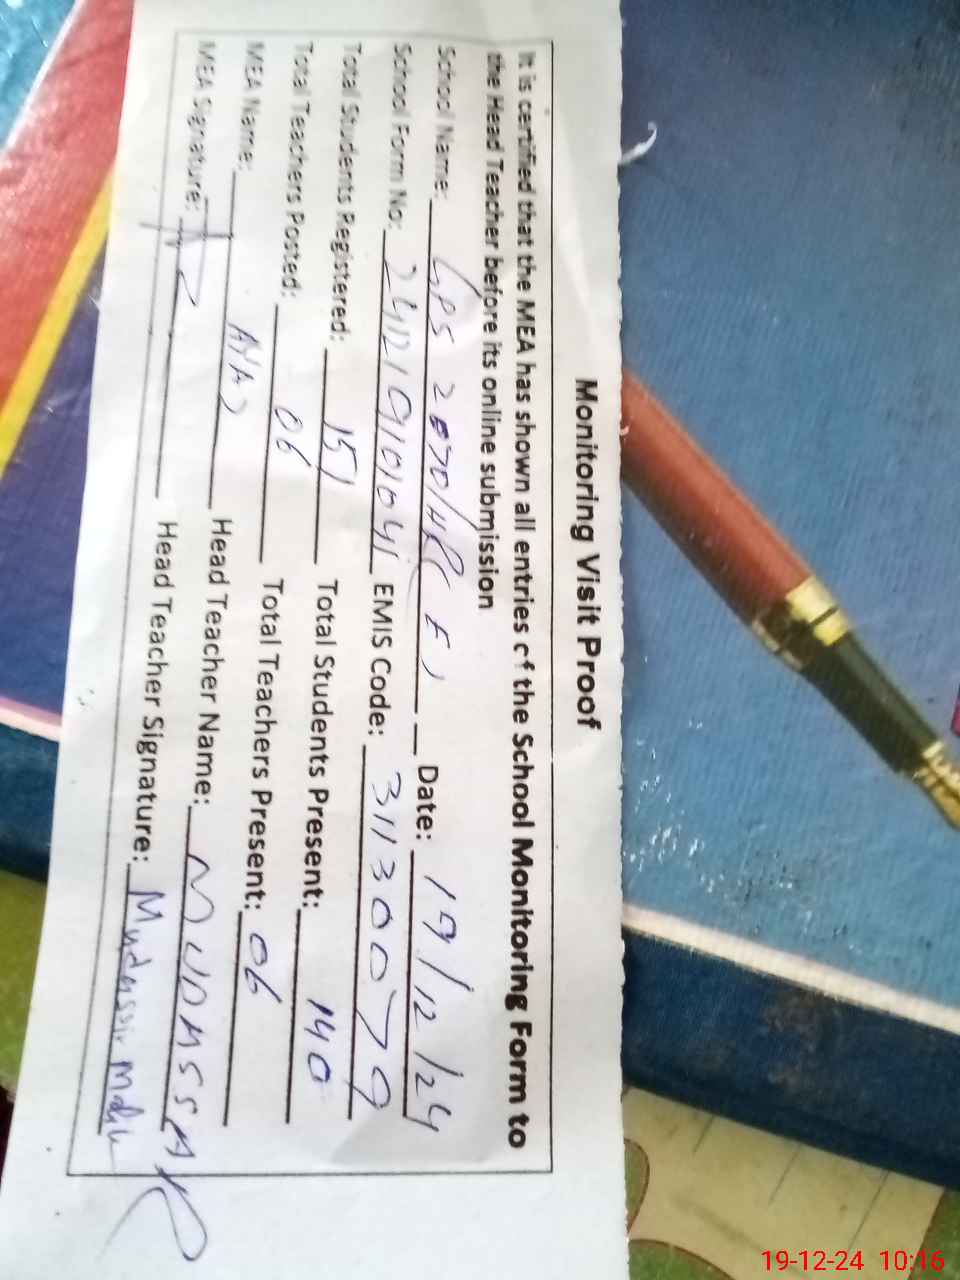 Monitoring Visit Proof
It is certified that the MEA has shown all entries of the School Monitoring Form to
the Head Teacher before its online submission
School Name: GPS 207D/HR( F) Date: 19/12/24
School Form No: 24121910104 EMIS Code: 31130079
Total Students Registered: 151 Total Students Present: 140
Total Teachers Posted: 06 Total Teachers Present: 06
MEA Name: Head Teacher Name: MUDASSAR
MEA Signature: Head Teacher Signature: Mudassir Malik
19-12-24 10:16